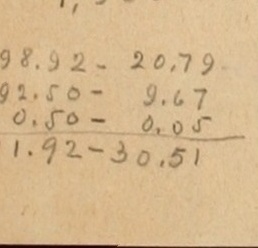 98.92 - 20.79
92.50 - 9.67
0.50 - 0.05
1.92 - 30.51